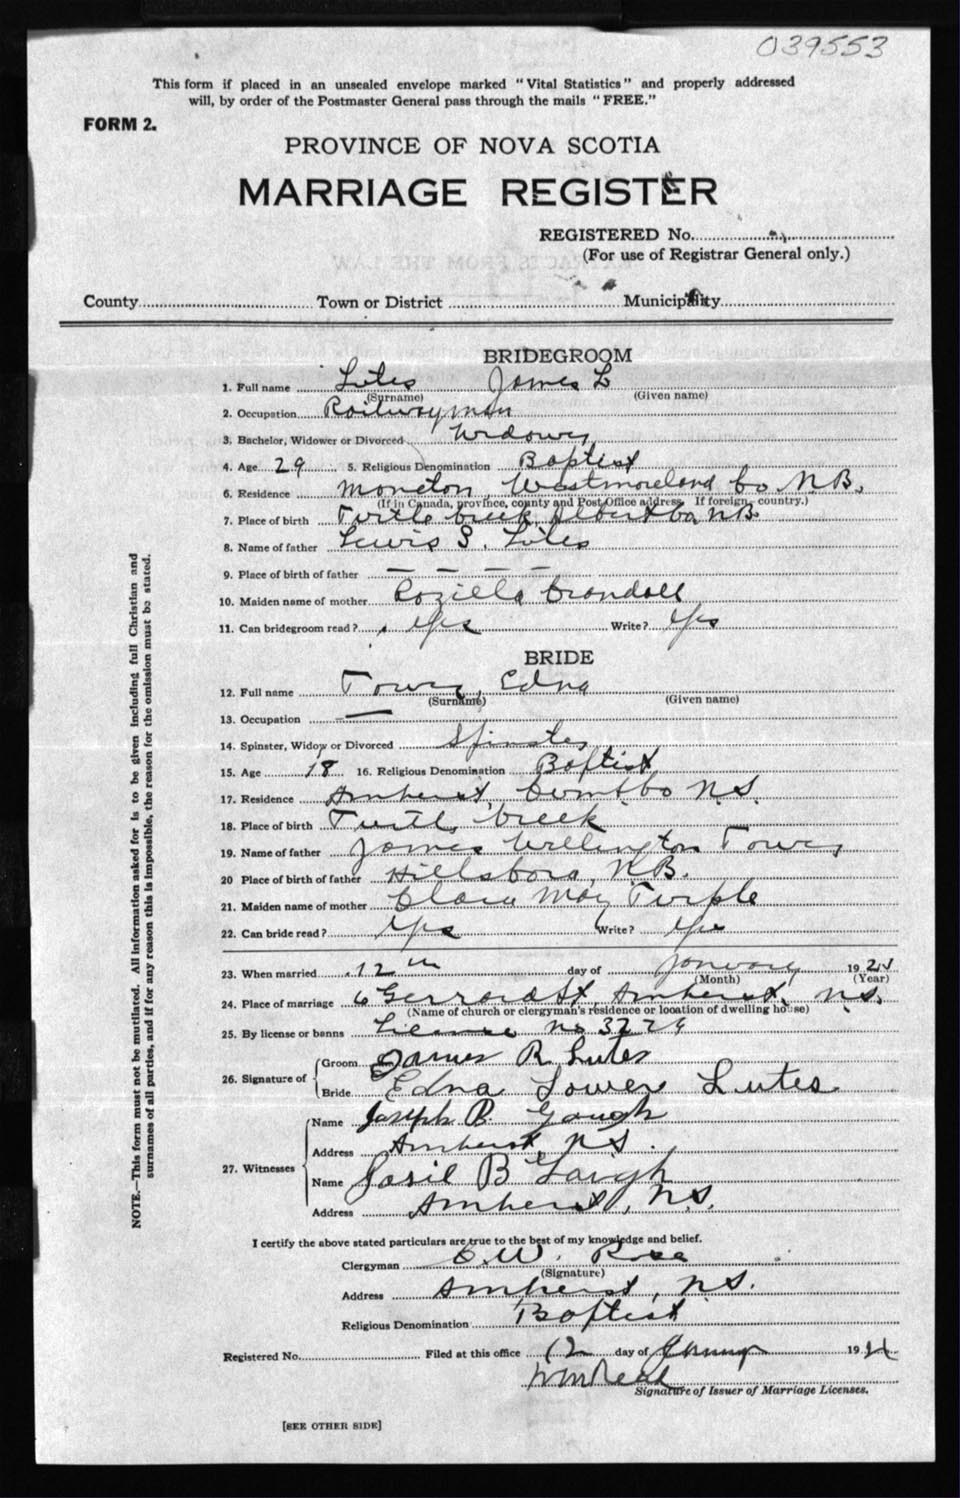 039553
This form if placed in an unsealed envelope marked "Vital Statistics" and properly addressed
will, by order of the Postmaster General pass through the mails "FREE."
FORM 2.
PROVINCE OF NOVA SCOTIA
MARRIAGE REGISTER
REGISTERED No.
(For use of Registrar General only.)
County Town or District Municipality
BRIDEGROOM
1. Full name Lutes James L
(Surname) (Given name)
2. Occupation Railwayman
3. Bachelor, Widower or Divorced Widower
4. Age 29 5. Religious Denomination Baptist
6. Residence Moncton Westmoreland Co N.B.
(If in Canada, province, county and Post Office address. If foreign, country.)
7. Place of birth Turtle Creek Albert Co, NB
8. Name of father Lewis S. Lutes
9. Place of birth of father — — — —
10. Maiden name of mother Rozilla Crandall
11. Can bridegroom read? Yes Write? Yes
BRIDE
12. Full name Tower, Edna
(Surname) (Given name)
13. Occupation —
14. Spinster, Widow or Divorced Spinster
15. Age 18 16. Religious Denomination Baptist
17. Residence Amherst, Cumb Co N.S.
18. Place of birth Turtle Creek
19. Name of father James Wellington Tower
20 Place of birth of father Hillsboro, N.B.
21. Maiden name of mother Clara May Turple
22. Can bride read? Yes Write? Yes
23. When married 12th day of January 1921
(Month) (Year)
24. Place of marriage 6 Gerrard St, Amherst, N.S.
(Name of church or clergyman's residence or location of dwelling house)
25. By license or banns License No
26. Signature of
Groom James R Lutes
Bride Edna Tower Lutes
27. Witnesses
Name Joseph B Gough
Address Amherst, N.S.
Name B
Address Amherst, N.S.
I certify the above stated particulars are true to the best of my knowledge and belief.
Clergyman E. W. Rose
(Signature)
Address Amherst, N.S.
Religious Denomination Baptist
Registered No. Filed at this office 12 day of January 1921
Signature of Issuer of Marriage Licenses.
[SEE OTHER SIDE]
NOTE.—This form must not be mutilated. All information asked for is to be given including full Christian and
surnames of all parties, and if for any reason this is impossible, the reason for the omission must be stated.